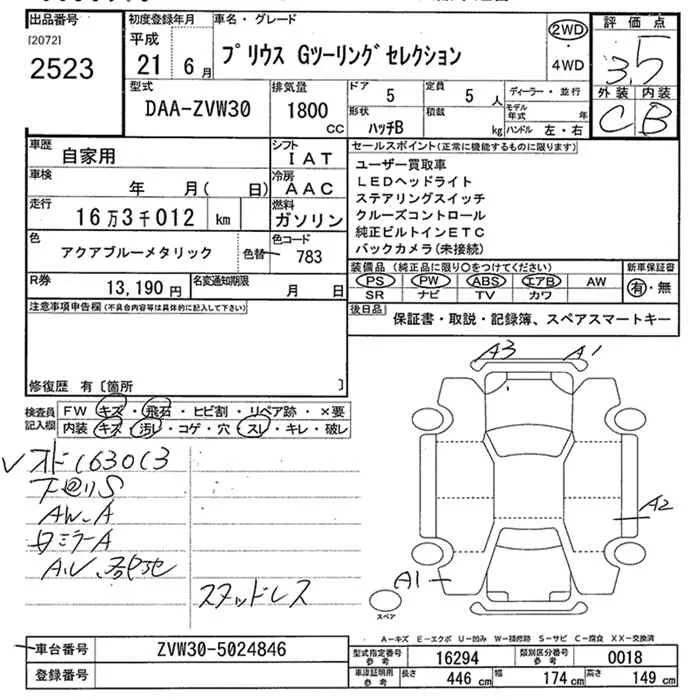 出品番号
[2072]
2523
初度登録年月
平成
21年 6月
車名・グレード
プリウス Gツーリングセレクション
2WD
・
4WD
評価点
3.5
外装 内装
C B
型式
DAA-ZVW30
排気量
1800
CC
ドア
5
定員
5人
ディーラー・並行
形状
ハッチB
積載
kg
モデル年式 年
ハンドル 左・右
車歴
自家用
シフト
IAT
車検
年 月( 日)
冷房
AAC
走行
16万3千012 km
燃料
ガソリン
色
アクアブルーメタリック
色替
色コード
783
R券
13,190円
名変通知期限
月 日
セールスポイント(正常に機能するものに限ります)
ユーザー買取車
LEDヘッドライト
ステアリングスイッチ
クルーズコントロール
純正ビルトインETC
バックカメラ(未接続)
装備品 (純正品に限り○をつけてください)
PS PW ABS エアB AW
SR ナビ TV カワ
新車保証書
有・無
後日品
保証書・取説・記録簿、スペアスマートキー
注意事項申告欄(不具合内容等は具体的に記入して下さい)
修復歴 有〔箇所 〕
検査員記入欄
FW キズ・飛石・ヒビ割・リペア跡・×要
内装 キズ・汚レ・コゲ・穴・スレ・キレ・破レ
オド163013
下回りS
AW.A
ミラーA
スタッドレス
A3 A1
A2
A1
スペア
A-キズ E-エクボ U-凹み W-補修跡 S-サビ C-腐食 XX-交換済
車台番号
ZVW30-5024846
登録番号
型式指定番号
参考
16294
類別区分番号
参考
0018
車庫証明用
参考
長さ
446cm
幅
174cm
高さ
149cm